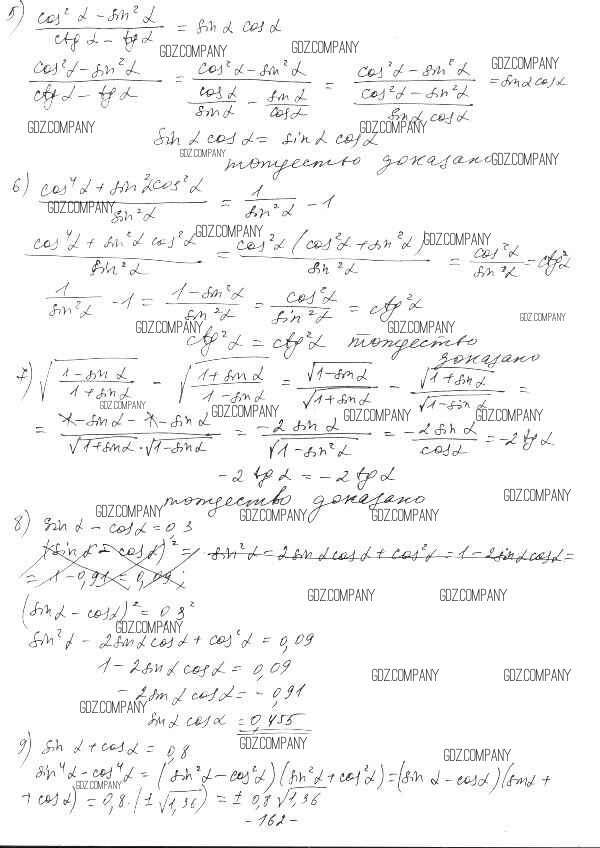 5) (cos²α - sin²α)/(ctgα - tgα) = sinα cosα
GDZ.COMPANY GDZ.COMPANY
(cos²α - sin²α)/(ctgα - tgα) = (cos²α - sin²α)/(cosα/sinα - sinα/cosα) = (cos²α - sin²α)/((cos²α - sin²α)/(sinα cosα)) = sinα cosα
GDZ.COMPANY
GDZ.COMPANY GDZ.COMPANY GDZ.COMPANY
sinα cosα = sinα cosα
GDZ.COMPANY GDZ.COMPANY
тождество доказано
6) (cos⁴α + sin²α cos²α)/sin²α = 1/sin²α - 1
GDZ.COMPANY GDZ.COMPANY
(cos⁴α + sin²α cos²α)/sin²α = cos²α (cos²α + sin²α)/sin²α = cos²α/sin²α = ctg²α
GDZ.COMPANY
1/sin²α - 1 = (1 - sin²α)/sin²α = cos²α/sin²α = ctg²α
GDZ.COMPANY GDZ.COMPANY GDZ.COMPANY
ctg²α = ctg²α тождество
доказано
7) √((1 - sinα)/(1 + sinα)) - √((1 + sinα)/(1 - sinα)) = √(1 - sinα)/√(1 + sinα) - √(1 + sinα)/√(1 - sinα) =
GDZ.COMPANY GDZ.COMPANY GDZ.COMPANY GDZ.COMPANY
= (1 - sinα - 1 - sinα)/(√(1 + sinα)·√(1 - sinα)) = -2 sinα/√(1 - sin²α) = -2 sinα/cosα = -2 tgα
-2 tgα = -2 tgα
тождество доказано
GDZ.COMPANY
GDZ.COMPANY GDZ.COMPANY GDZ.COMPANY
8) sinα - cosα = 0,3
(sinα - cosα)² = sin²α - 2sinα cosα + cos²α = 1 - 2sinα cosα =
= 1 - 0,91 = 0,09;
GDZ.COMPANY GDZ.COMPANY
(sinα - cosα)² = 0,3²
GDZ.COMPANY
sin²α - 2sinα cosα + cos²α = 0,09
1 - 2sinα cosα = 0,09
GDZ.COMPANY GDZ.COMPANY
- 2sinα cosα = - 0,91
GDZ.COMPANY
sinα cosα = 0,455
GDZ.COMPANY
9) sinα + cosα = 0,8
GDZ.COMPANY
sin⁴α - cos⁴α = (sin²α - cos²α)(sin²α + cos²α) = (sinα - cosα)(sinα +
GDZ.COMPANY
+ cosα) = 0,8·(±√1,36) = ± 0,8√1,36
- 162 -